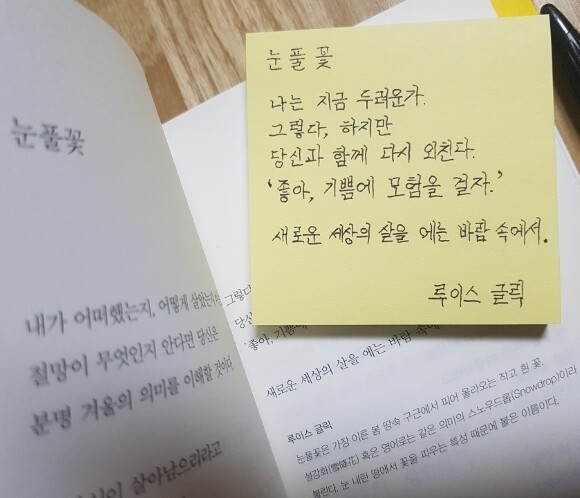 눈풀꽃
내가 어떠했는지, 어떻게 살았는지
절망이 무엇인지 안다면 당신은
분명 겨울의 의미를 이해할 것이다.
살아남으리라고
눈풀꽃
나는 지금 두려운가.
그렇다, 하지만
당신과 함께 다시 외친다.
'좋아, 기쁨에 모험을 걸자.'
새로운 세상의 살을 에는 바람 속에서.
루이스 글릭
그렇다
당신
'좋아, 기쁨에
새로운 세상의 살을 에는 바람 속에
루이스 글릭
눈풀꽃은 가장 이른 봄 땅속 구근에서 피어 올라오는 작고 흰 꽃.
설강화(雪降花) 혹은 영어로는 같은 의미의 스노우드롭(Snowdrop)이라
불린다. 눈 내린 땅에서 꽃을 피우는 특성 때문에 붙은 이름이다.